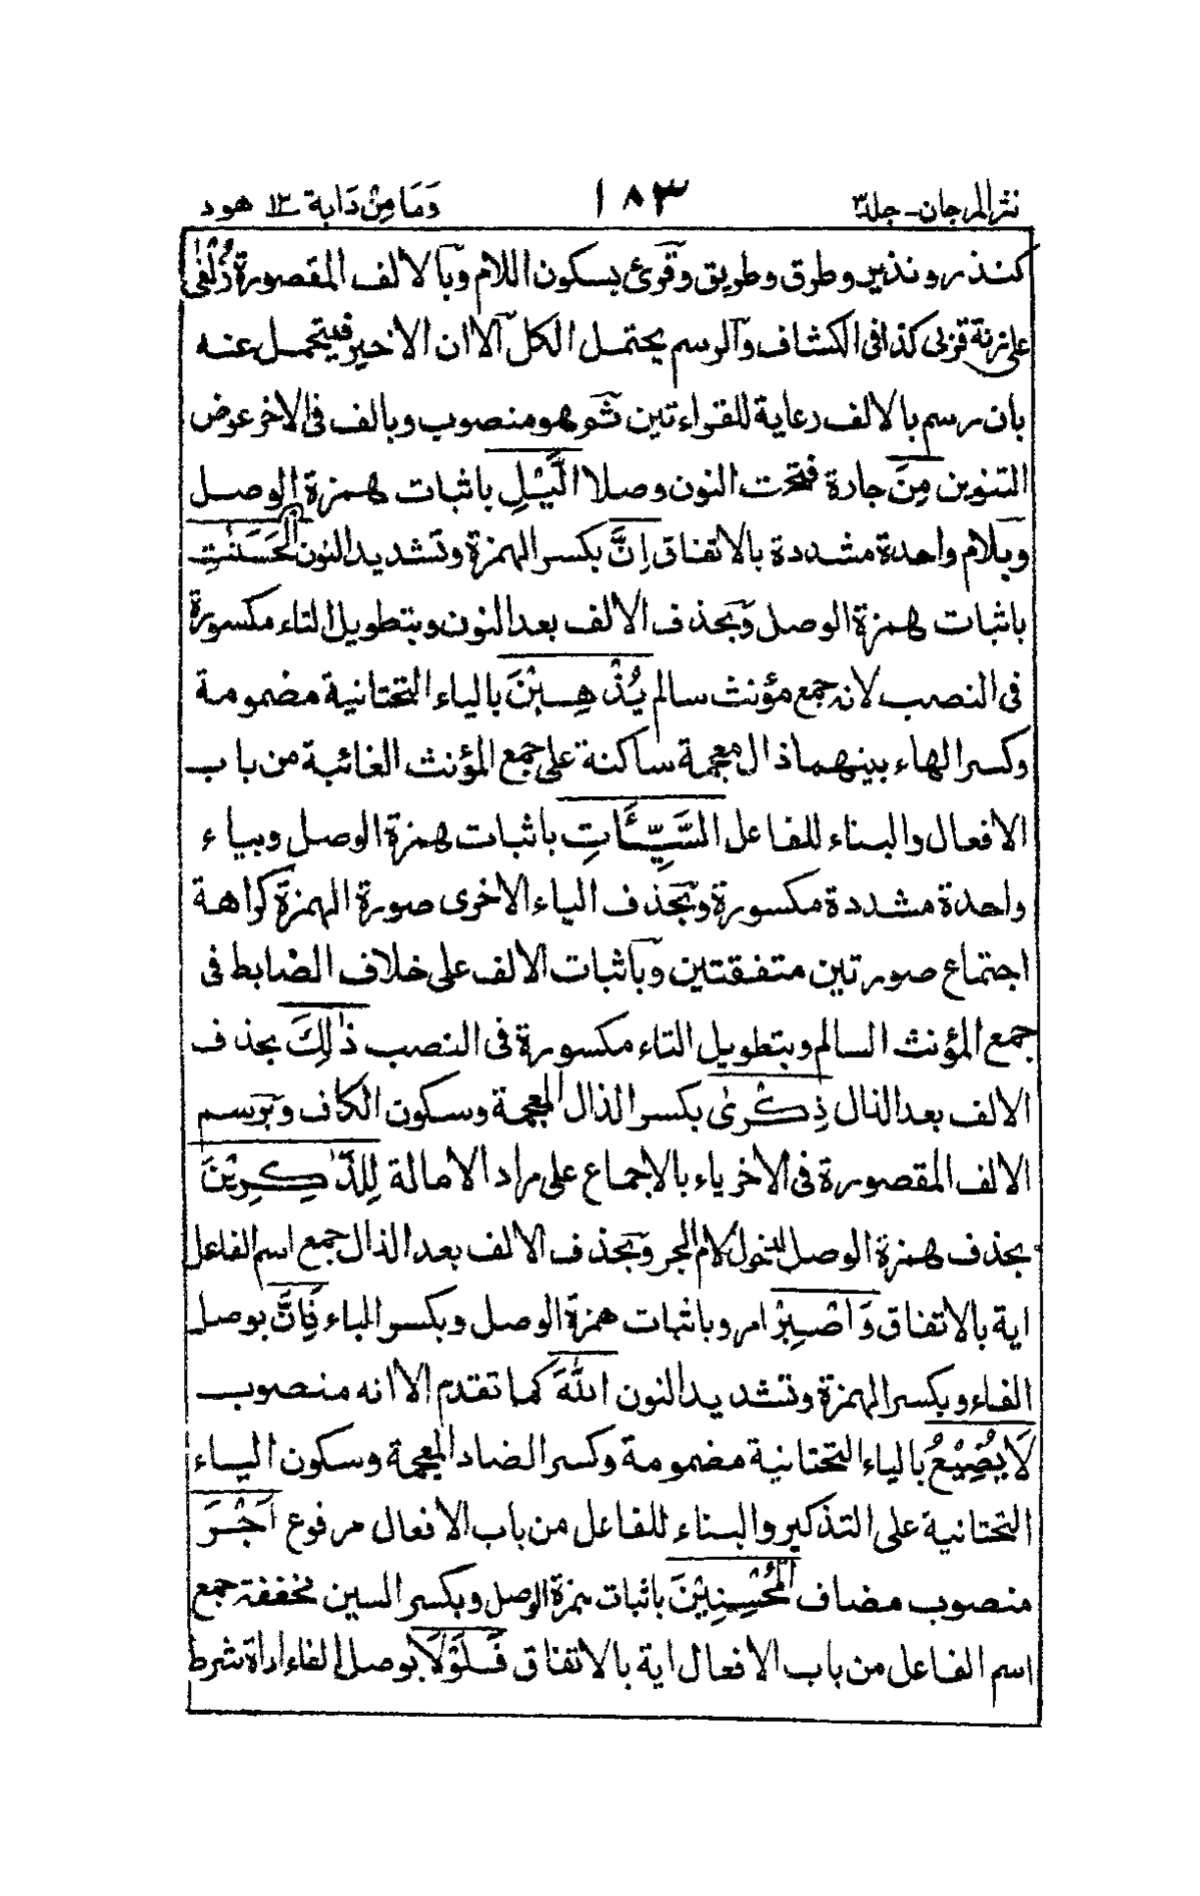 نثر المرجان - جلد٣ ١٨٣ وَمَا مِنْ دَابة ١٢ هود
كنذر ونذير وطرق وطريق وقرئ بسكون اللام وبالالف المقصورة زُلْفٰى
على زنة قربى كذا فى الكشاف والرسم يحتمل الكل الا ان الاخير فيتحمل عنه
بان رسم بالالف رعاية للقراءتين ثم هو منصوب وبالف فى الاخر عوض
التنوين مِنَ جارة فتحت النون وصلا الَّيْلِ باثبات همزة الوصل
وبلام واحدة مشددة بالاتفاق اِنَّ بكسر الهمزة وتشديد النون الْحَسَنٰتِ
باثبات همزة الوصل وبحذف الالف بعد النون وبتطويل التاء مكسورة
فى النصب لانه جمع مؤنث سالم يُذْهِبْنَ بالياء التحتانية مضمومة
وكسر الهاء بينهما ذال معجمة ساكنة على جمع المؤنث الغائبة من باب
الافعال والبناء للفاعل السَّيِّئَاتِ باثبات همزة الوصل وبياء
واحدة مشددة مكسورة وبحذف الياء الاخرى صورة الهمزة كراهة
اجتماع صورتين متفقتين وباثبات الالف على خلاف الضابط فى
جمع المؤنث السالم وبتطويل التاء مكسورة فى النصب ذٰلِكَ بحذف
الالف بعد الذال ذِكْرٰى بكسر الذال المعجمة وسكون الكاف وبرسم
الالف المقصورة فى الاخر ياء بالاجماع على مراد الامالة لِلذّٰكِرِيْنَ
بحذف همزة الوصل لدخول لام الجر وبحذف الالف بعد الذال جمع اسم الفاعل
اية بالاتفاق وَاصْبِرْ امر وباثبات همزة الوصل وبكسر الباء فَاِنَّ بوصل
الفاء وبكسر الهمزة وتشديد النون اللّٰهَ كما تقدم الا انه منصوب
لَا يُضِيْعُ بالياء التحتانية مضمومة وكسر الضاد المعجمة وسكون الياء
التحتانية على التذكير والبناء للفاعل من باب الافعال مرفوع اَجْرَ
منصوب مضاف الْمُحْسِنِيْنَ باثبات همزة الوصل وبكسر السين مخففة جمع
اسم الفاعل من باب الافعال اية بالاتفاق فَلَوْلَا بوصل الفاء اداة شرط